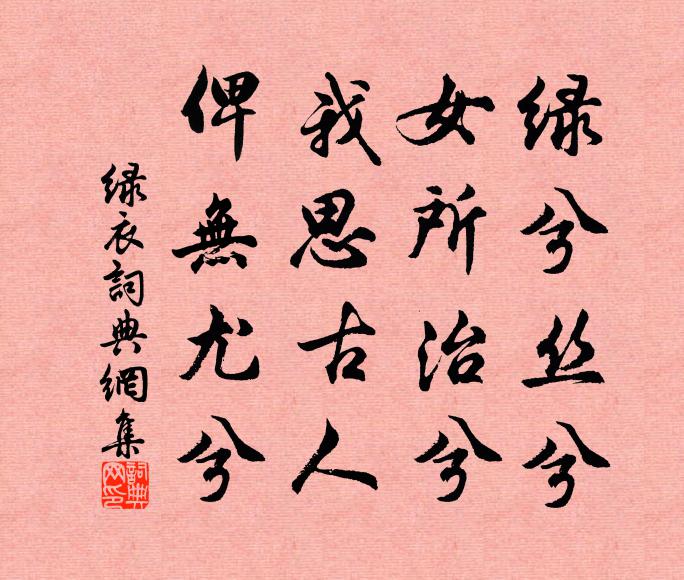 绿兮丝兮
女所治兮
我思古人
俾無尤兮
绿衣詞典網集
詞典
网印